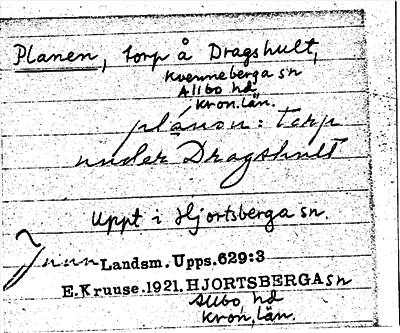 Planen, torp å Dragshult,
Kvenneberga sn
Allbo hd
Kron. län.
plánon: torp
under Dragshult
Uppt i Hjortsberga sn.
Landsm. Upps. 629:3
E. Kruuse. 1921. HJORTSBERGA sn
Allbo hd
Kron. län.